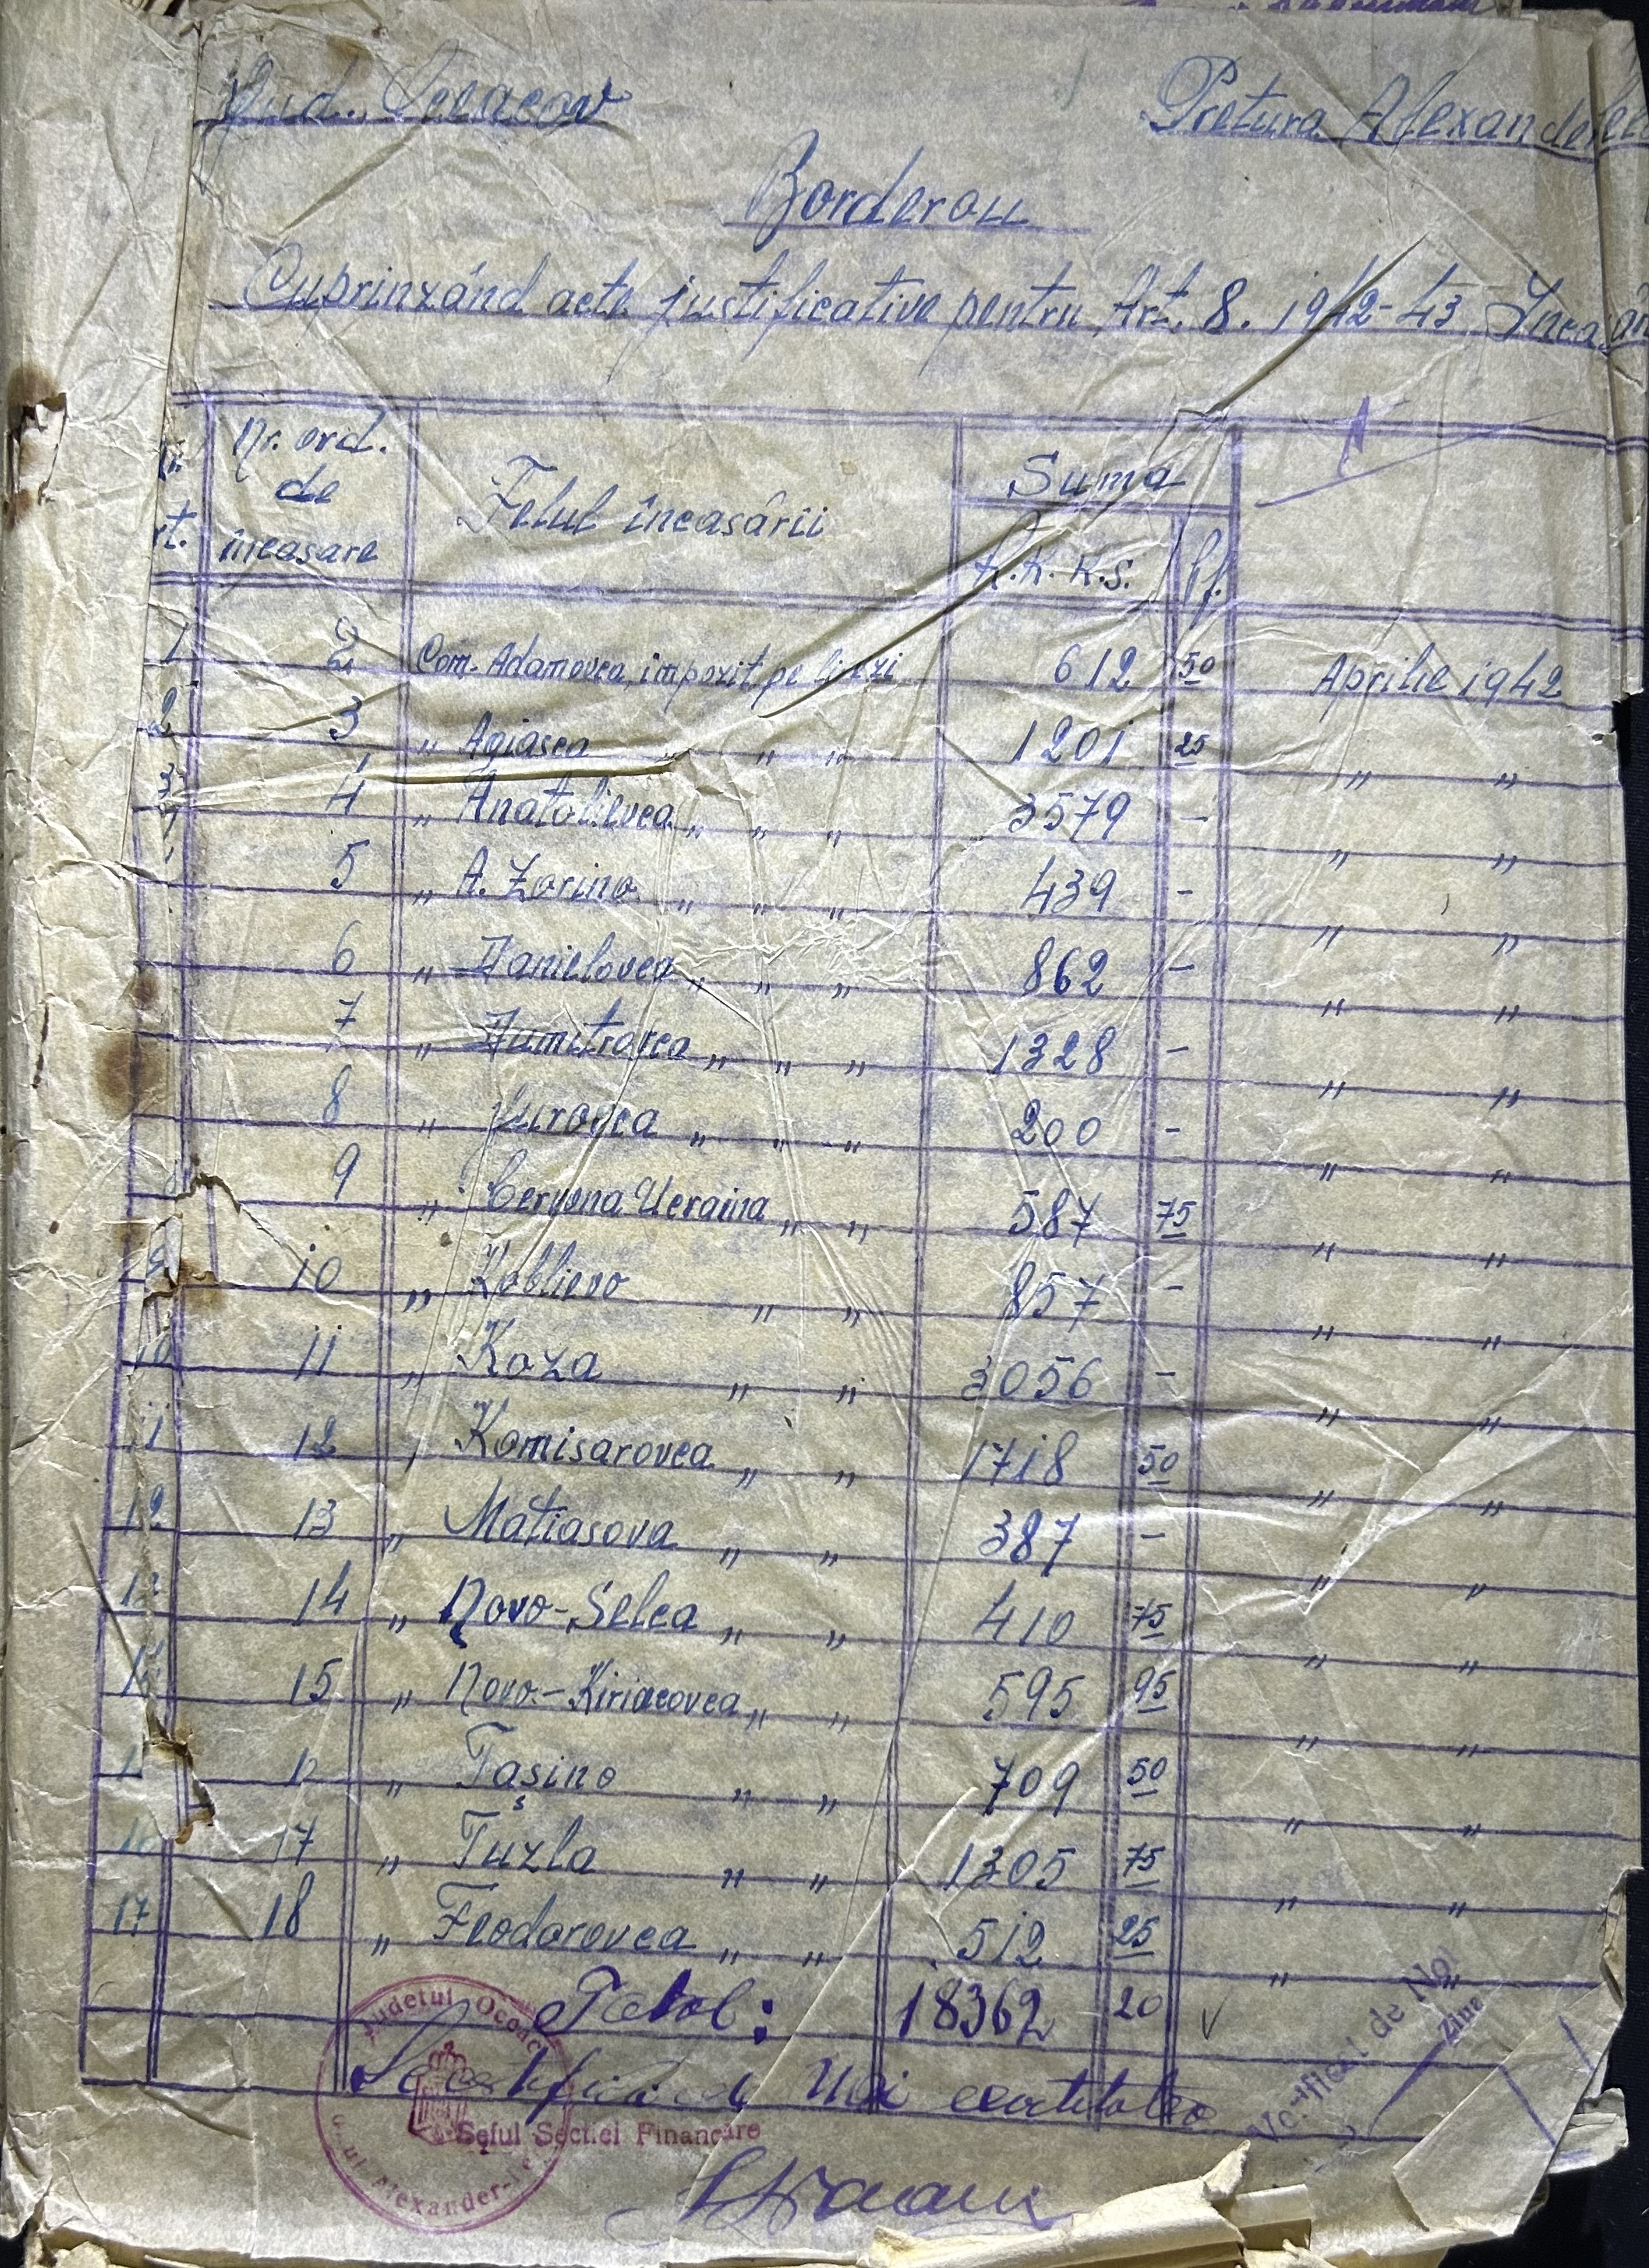 Jud. Oceacov Pretura Alexanderfeld
Borderou
Cuprinzând acte justificative pentru Art. 8. 1942-43 Încasări
Nr. ord. de încasare Felul încasării Suma
R.K.K.S. Pf.
1 2 Com. Adamovca, impozit pe livezi 612 50 Aprilie 1942
2 3 „ Agiasca „ „ „ 1201 25 „ „
3 4 „ Anatolievca „ „ „ 3579 - „ „
5 „ A. Zorino „ „ „ 439 - „ „
6 „ Danielovca „ „ „ 862 - „ „
7 „ Dumitrovca „ „ „ 1328 - „ „
8 „ Jurovca „ „ „ 200 - „ „
9 „ Cervona Ucraina „ „ 587 75 „ „
9 10 „ Koblievo „ „ 857 - „ „
10 11 „ Koza „ „ 3056 - „ „
11 12 „ Komisarovca „ „ 1718 50 „ „
12 13 „ Matiasova „ „ 387 - „ „
13 14 „ Novo-Selca „ „ 410 75 „ „
14 15 „ Novo-Kiriacovca „ „ 595 95 „ „
„ Tașino „ „ 709 50 „ „
16 17 „ Tuzla „ „ 1305 75 „ „
17 18 „ Feodorovca „ „ 512 25 „ „
Total: 18362 20
Se certifică de Noi exactitatea
Județul Oceacov
Șeful Secției Financare
Verificat de Noi
Ziua